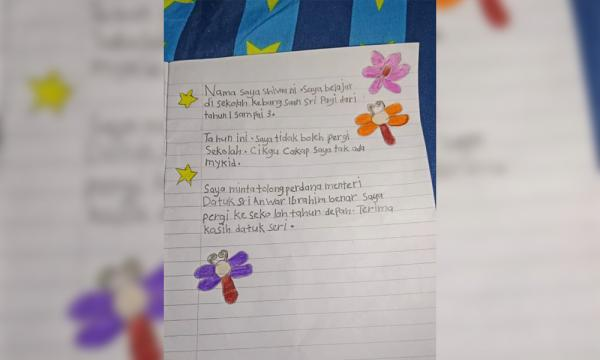 Nama saya Shivani. Saya belajar
di sekolah kebangsaan Sri Pagi dari
tahun 1 sampai 3.
Tahun ini. Saya tidak boleh pergi
Sekolah. Cikgu Cakap Saya tak ada
mykid.
Saya minta tolong perdana menteri
Datuk Sri Anwar Ibrahim benar Saya
pergi ke seko lah tahun depan. Terima
kasih datuk seri.